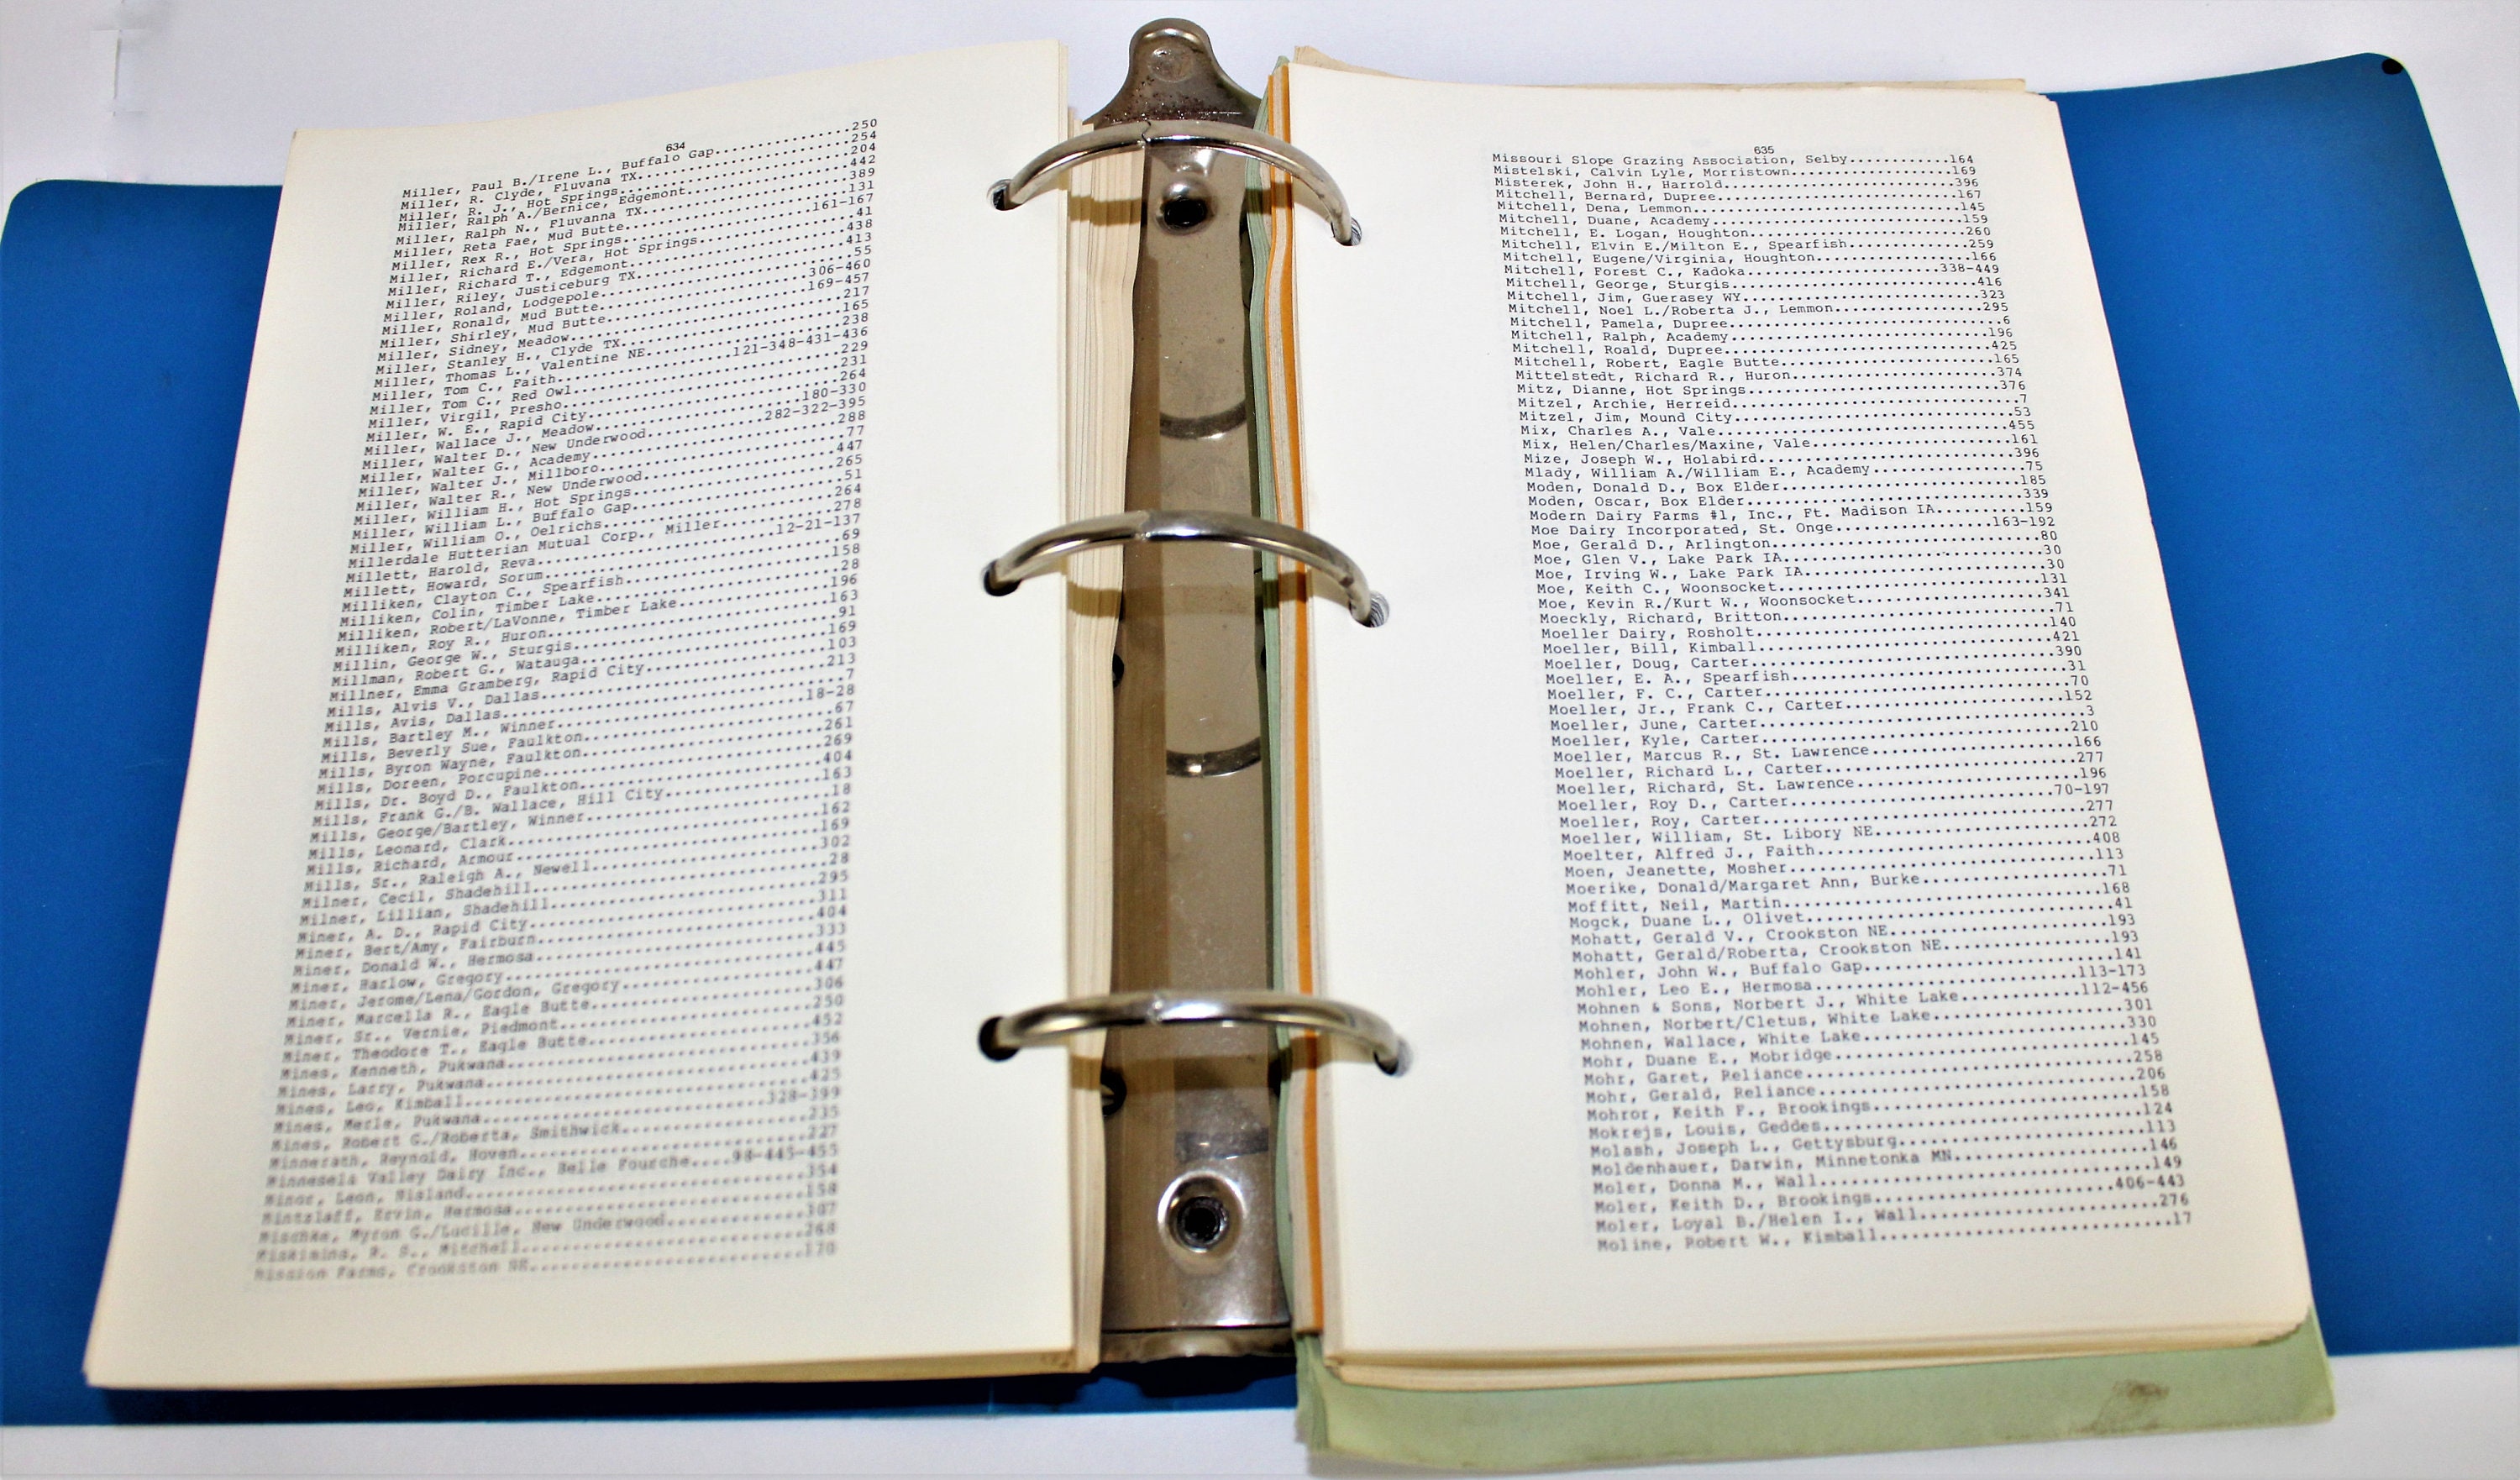 634
Miller, Paul B./Irene L., Buffalo Gap...............250
Miller, R. Clyde, Fluvana TX...............254
Miller, R. J., Hot Springs...............204
Miller, Ralph A./Bernice, Edgemont...............442
Miller, Ralph N., Fluvanna TX...............389
Miller, Reta Fae, Mud Butte...............131
Miller, Rex R., Hot Springs...............161-167
Miller, Richard E./Vera, Hot Springs...............41
Miller, Richard T., Edgemont...............438
Miller, Riley, Justiceburg TX...............413
Miller, Roland, Lodgepole...............55
Miller, Ronald, Mud Butte...............306-460
Miller, Shirley, Mud Butte...............169-457
Miller, Sidney, Meadow...............217
Miller, Stanley H., Clyde TX...............165
Miller, Thomas L., Valentine NE...............238
Miller, Tom C., Faith...............121-348-431-436
Miller, Tom C., Red Owl...............229
Miller, Virgil, Presho...............231
Miller, W. E., Rapid City...............264
Miller, Wallace J., Meadow...............180-330
Miller, Walter D., New Underwood...............282-322-395
Miller, Walter G., Academy...............288
Miller, Walter J., Millboro...............77
Miller, Walter R., New Underwood...............447
Miller, William H., Hot Springs...............265
Miller, William L., Buffalo Gap...............51
Miller, William O., Oelrichs...............264
Millerdale Hutterian Mutual Corp., Miller...........278
Millett, Harold, Reva...............12-21-137
Millett, Howard, Sorum...............69
Milliken, Clayton C., Spearfish...............158
Milliken, Colin, Timber Lake...............28
Milliken, Robert/LaVonne, Timber Lake...............196
Milliken, Roy R., Huron...............163
Millin, George W., Sturgis...............91
Millman, Robert G., Watauga...............169
Millner, Emma Gramberg, Rapid City...............103
Mills, Alvis V., Dallas...............213
Mills, Avis, Dallas...............7
Mills, Bartley M., Winner...............18-28
Mills, Beverly Sue, Faulkton...............67
Mills, Byron Wayne, Faulkton...............261
Mills, Doreen, Porcupine...............269
Mills, Dr. Boyd D., Faulkton...............404
Mills, Frank G./B. Wallace, Hill City...............163
Mills, George/Bartley, Winner...............18
Mills, Leonard, Clark...............162
Mills, Richard, Armour...............169
Mills, Sr., Raleigh A., Newell...............302
Milner, Cecil, Shadehill...............28
Milner, Lillian, Shadehill...............295
Miner, A. D., Rapid City...............311
Miner, Bert/Amy, Fairburn...............404
Miner, Donald W., Hermosa...............333
Miner, Harlow, Gregory...............445
Miner, Jerome/Lena/Gordon, Gregory...............447
Miner, Marcella R., Eagle Butte...............306
Miner, Sr., Vernie, Piedmont...............250
Miner, Theodore T., Eagle Butte...............452
Mines, Kenneth, Pukwana...............356
Mines, Larry, Pukwana...............439
Mines, Leo, Kimball...............425
Mines, Merle, Pukwana...............328-399
Mines, Robert G./Roberta, Smithwick...............235
Minnerath, Reynold, Hoven...............227
Minnesela Valley Dairy Inc., Belle Fourche....98-445-455
Minor, Leon, Nisland...............354
Mintzlaff, Ervin, Hermosa...............158
Mischke, Myron G./Lucille, New Underwood...............307
Miskimins, R. S., Mitchell...............268
Mission Farms, Crookston NE...............170
635
Missouri Slope Grazing Association, Selby............164
Mistelski, Calvin Lyle, Morristown...............169
Misterek, John H., Harrold...............396
Mitchell, Bernard, Dupree...............167
Mitchell, Dena, Lemmon...............145
Mitchell, Duane, Academy...............159
Mitchell, E. Logan, Houghton...............260
Mitchell, Elvin E./Milton E., Spearfish...............259
Mitchell, Eugene/Virginia, Houghton...............166
Mitchell, Forest C., Kadoka...............338-449
Mitchell, George, Sturgis...............416
Mitchell, Jim, Guerasey WY...............323
Mitchell, Noel L./Roberta J., Lemmon...............295
Mitchell, Pamela, Dupree...............6
Mitchell, Ralph, Academy...............196
Mitchell, Roald, Dupree...............425
Mitchell, Robert, Eagle Butte...............165
Mittelstedt, Richard R., Huron...............374
Mitz, Dianne, Hot Springs...............376
Mitzel, Archie, Herreid...............7
Mitzel, Jim, Mound City...............53
Mix, Charles A., Vale...............455
Mix, Helen/Charles/Maxine, Vale...............161
Mize, Joseph W., Holabird...............396
Mlady, William A./William E., Academy...............75
Moden, Donald D., Box Elder...............185
Moden, Oscar, Box Elder...............339
Modern Dairy Farms #1, Inc., Ft. Madison IA..........159
Moe Dairy Incorporated, St. Onge...............163-192
Moe, Gerald D., Arlington...............80
Moe, Glen V., Lake Park IA...............30
Moe, Irving W., Lake Park IA...............30
Moe, Keith C., Woonsocket...............131
Moe, Kevin R./Kurt W., Woonsocket...............341
Moeckly, Richard, Britton...............71
Moeller Dairy, Rosholt...............140
Moeller, Bill, Kimball...............421
Moeller, Doug, Carter...............390
Moeller, E. A., Spearfish...............31
Moeller, F. C., Carter...............70
Moeller, Jr., Frank C., Carter...............152
Moeller, June, Carter...............3
Moeller, Kyle, Carter...............210
Moeller, Marcus R., St. Lawrence...............166
Moeller, Richard L., Carter...............277
Moeller, Richard, St. Lawrence...............196
Moeller, Roy D., Carter...............70-197
Moeller, Roy, Carter...............277
Moeller, William, St. Libory NE...............272
Moelter, Alfred J., Faith...............408
Moen, Jeanette, Mosher...............113
Moerike, Donald/Margaret Ann, Burke...............71
Moffitt, Neil, Martin...............168
Mogck, Duane L., Olivet...............41
Mohatt, Gerald V., Crookston NE...............193
Mohatt, Gerald/Roberta, Crookston NE...............193
Mohler, John W., Buffalo Gap...............141
Mohler, Leo E., Hermosa...............113-173
Mohnen & Sons, Norbert J., White Lake............112-456
Mohnen, Norbert/Cletus, White Lake...............301
Mohnen, Wallace, White Lake...............330
Mohr, Duane E., Mobridge...............145
Mohr, Garet, Reliance...............258
Mohr, Gerald, Reliance...............206
Mohror, Keith F., Brookings...............158
Mokrejs, Louis, Geddes...............124
Molash, Joseph L., Gettysburg...............113
Moldenhauer, Darwin, Minnetonka MN...............146
Moler, Donna M., Wall...............149
Moler, Keith D., Brookings...............406-443
Moler, Loyal B./Helen I., Wall...............276
Moline, Robert W., Kimball...............17